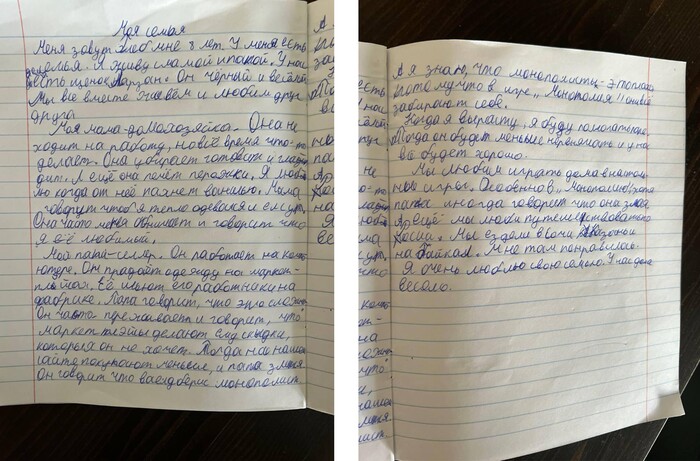 Моя семья
Меня зовут Глеб мне 8 лет. У меня есть
семья. Я живу с мамой и папой. У нас
есть щенок Тарзан. Он чёрный и весёлый.
Мы все вместе живем и любим друг
друга.
Моя мама - домохозяйка. Она не
ходит на работу, но всё время что-то
делает. Она убирает готовит и гладит
. А ещё она печёт пирожки. Я люб
лю когда от неё пахнет ванилью. Мама
говорит чтоб я тепло одевался и ел суп.
Она часто меня обнимает и говорит что
я её любимый.
Мой папа - селлер. Он работает на комп
ютере. Он продаёт одежду на маркет-
плейсах. Её шьют его работники на
фабрике. Папа говорит, что это сложно.
Он часто переживает и говорит, что
маркетплэйсы делают ему скидки,
которых он не хочет. Тогда на нашем
сайте покупают меньше, и папа злится
Он говорит что вайлдберис монополист.
А я знаю, что монополисты - это плохо
потому что в игре „Монополия" они всё
забирают себе.
Когда я вырасту, я буду помогать папе.
Тогда он будет меньше нервничать и у нас
всё будет хорошо.
Мы любим играть дома в настоль
ные игры. Особенно в „Монополию" хотя
папа иногда говорит что она злая.
А ещё мы любим путешествовать по
России. Мы ездили в Сочи в Казань и
на Байкал. Мне там понравилось.
Я очень люблю свою семью. У нас дома
весело.